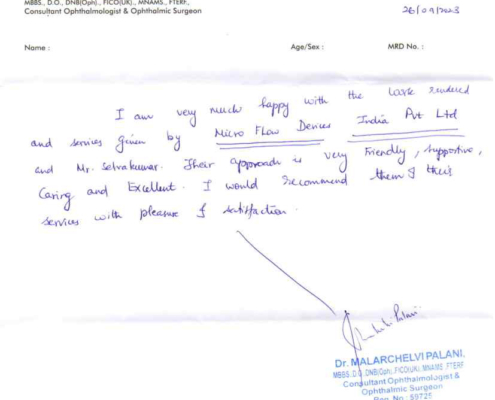 MBBS., D.O., DNB(Oph)., FICO(UK)., MNAMS., FTERF.,
Consultant Ophthalmologist & Ophthalmic Surgeon
26/09/2023
Name :    Age/Sex :    MRD No. :
I am very much happy with the work rendered
and services given by Micro Flow Devices India Pvt Ltd
and Mr. Selvakumar. Their approach is very Friendly, supportive,
Caring and Excellent. I would recommend them & their
services with pleasure & satisfaction.
Dr. MALARCHELVI PALANI.
MBBS.,D.O.,DNB(Oph).,FICO(UK).,MNAMS.,FTERF
Consultant Ophthalmologist &
Ophthalmic Surgeon
Reg. No : 59725